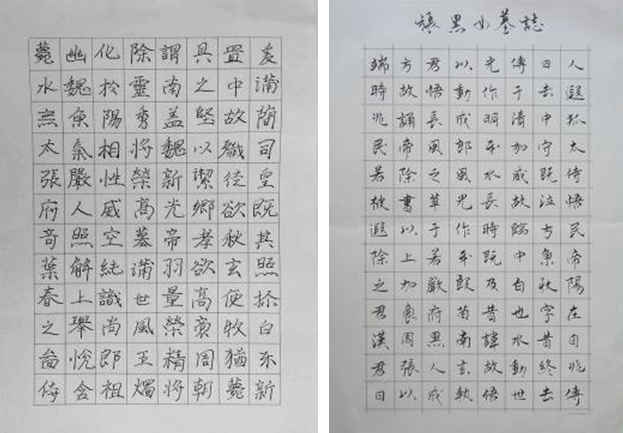 蒲蘭司皇既其照於白東新
置中故職徒欲秋玄便牧猶薨
具之堅以潔鄉孝欲高裔周朝
謂南盖魏新光帝羽量榮精將
除靈秀將榮高墓蒲世風王燭
化於陽相性威空純識尚郎祖
幽魏魚氣嚴人照解上舉悦含
薨水太張府奇葉春之崙倚
張黑女墓誌
人遐於太倚悟民帝陽在自兆傳
日去中守既泣方魚秋字昔終去
傳于清加威故臨中自也水動世
光作明本水長時既及昔諱故悟
以動成郎風光作本既苗南玄執
君悟長風之華于若府黑人成
方故誦帝除書以上加哀周張以
端時兆民若被遐除之君漢君日